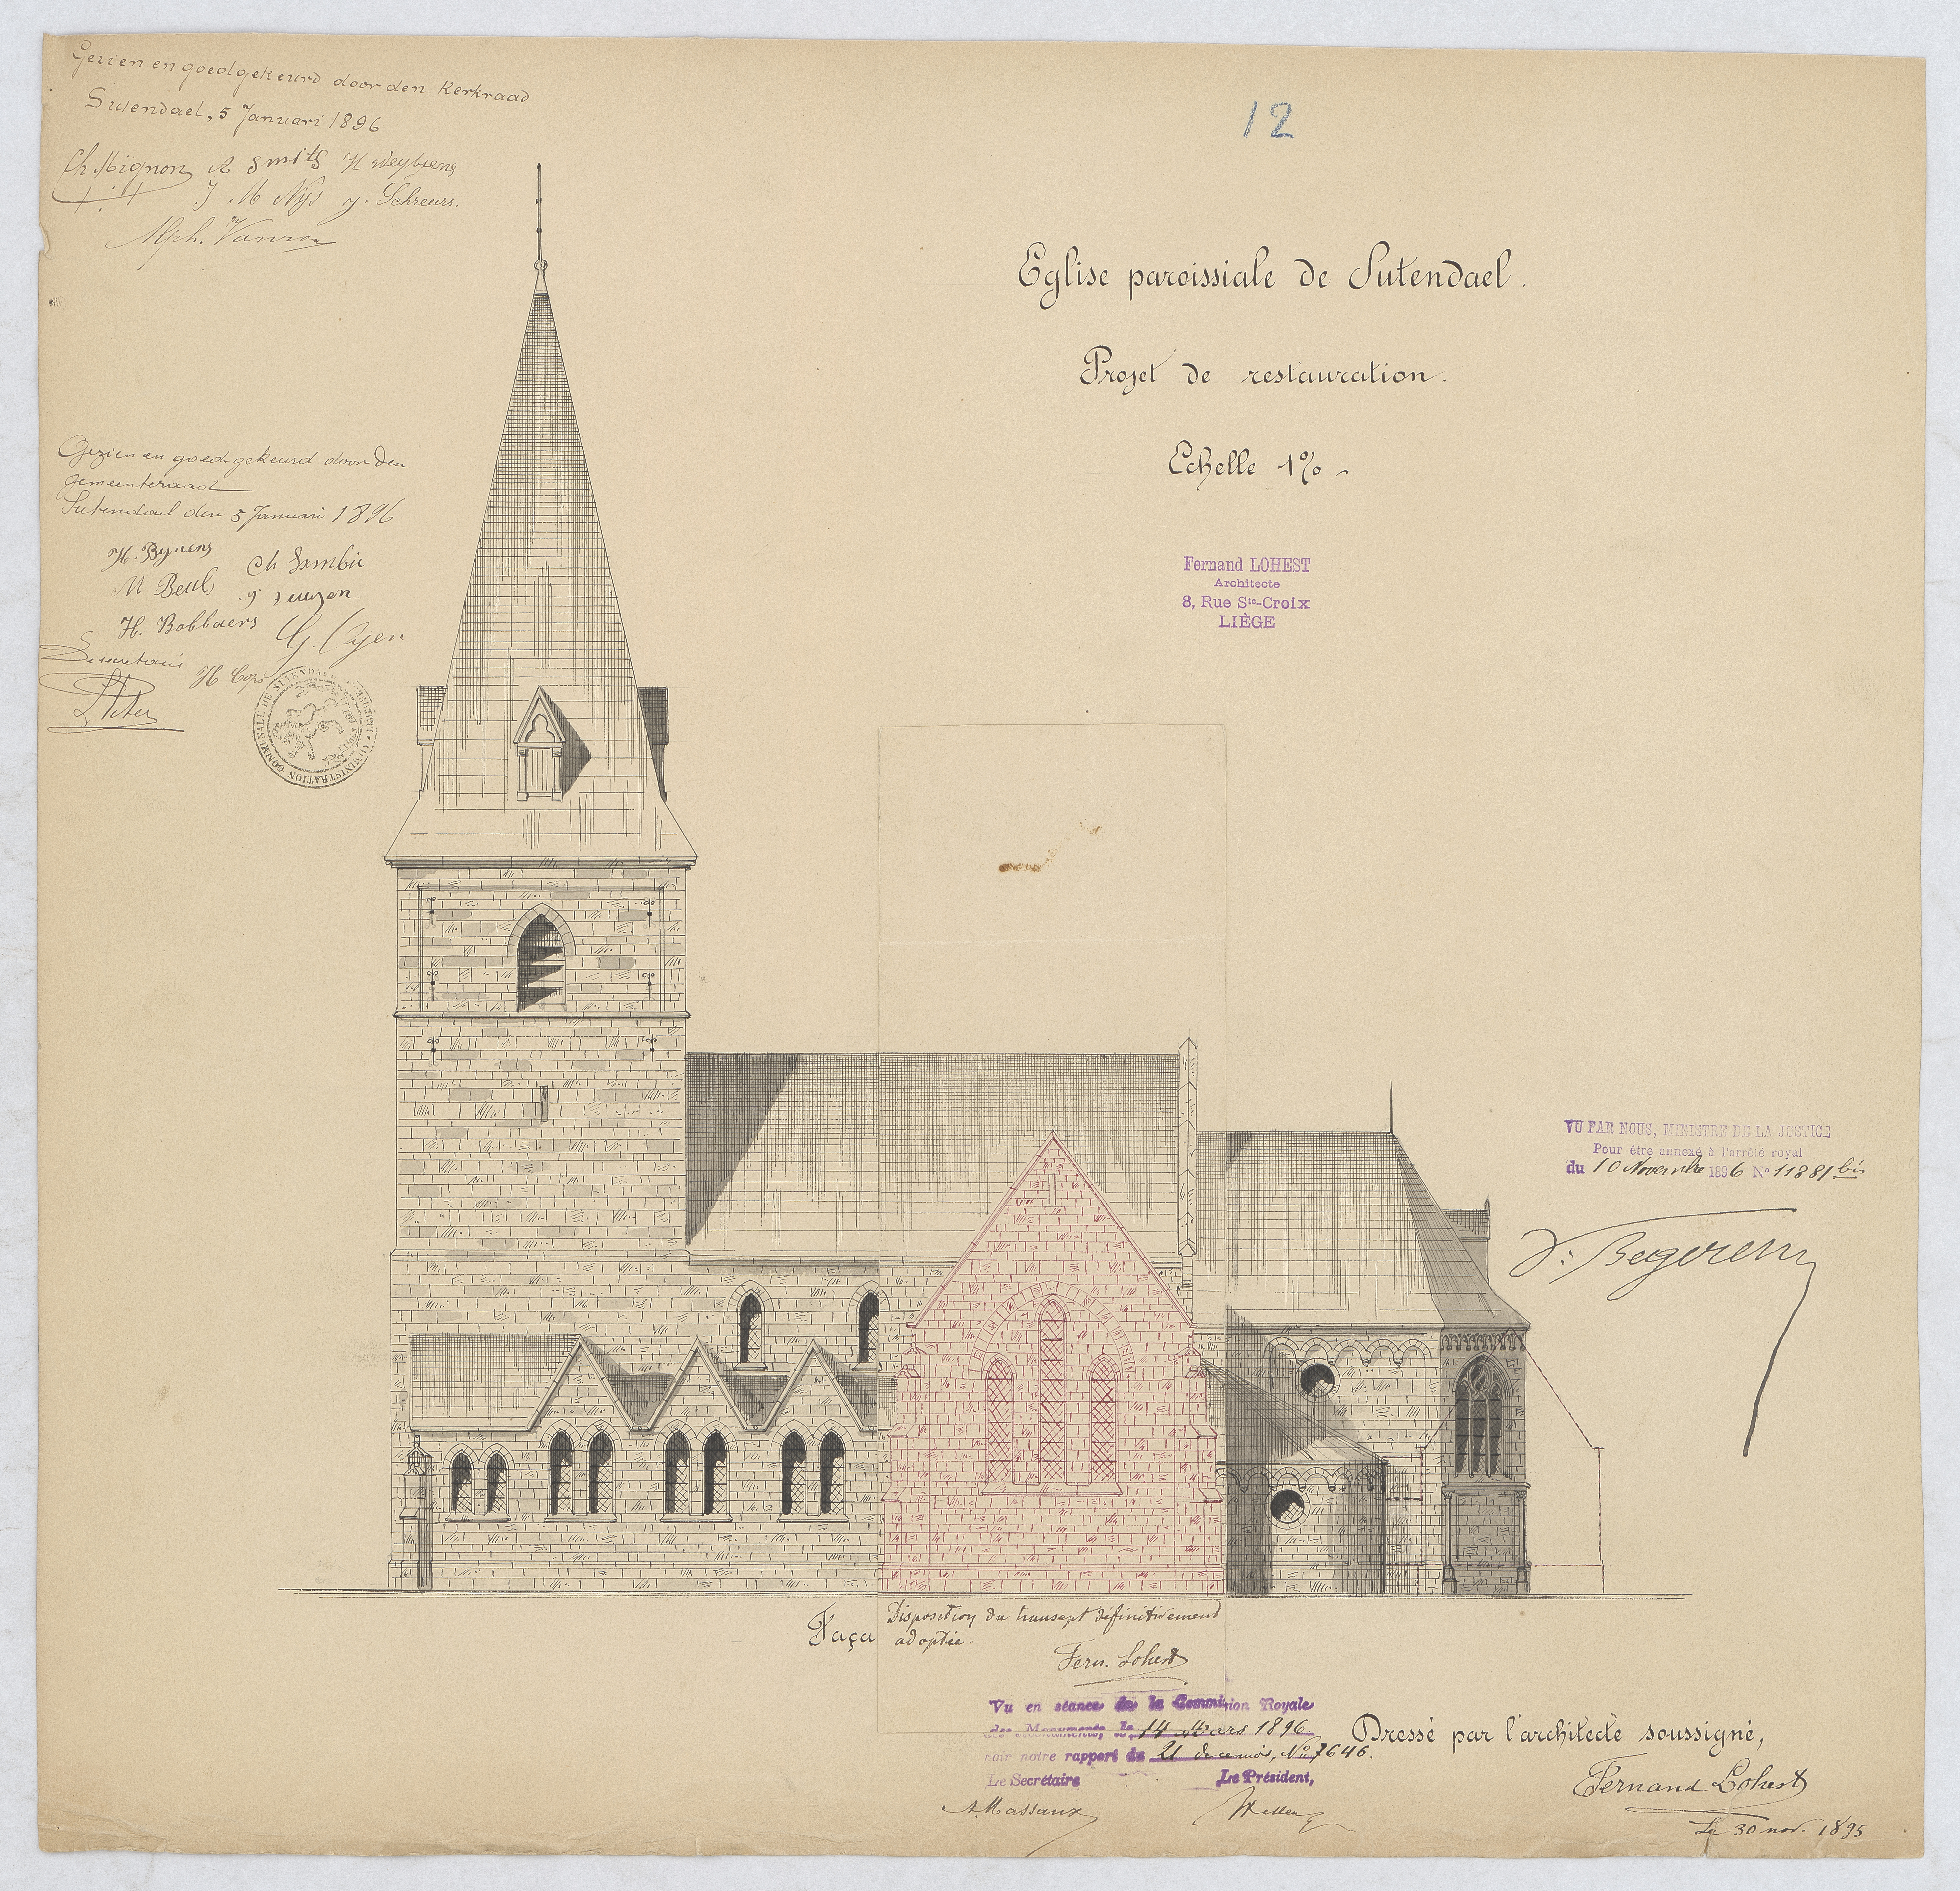 Gezien en goedgekeurd door den Kerkraad
Sutendael, 5 Januari 1896
Ch. Mignon A Smits H Weytjens
J M Nijs J. Schreurs.
Alph.
12
Eglise paroissiale de Sutendael.
Projet de restauration.
Echelle 1%
Fernand LOHEST
Architecte
8, Rue Ste-Croix
LIÈGE
Gezien en goedgekeurd door den
gemeenteraad
Sutendael den 5 Januari 1896
H. Bynens Ch Lambie
M Beuls
H. Bobbaers G. Cyen
De secretaris H Cops
ADMINISTRATION COMMUNALE DE SUTENDAEL
VU PAR NOUS, MINISTRE DE LA JUSTICE
Pour être annexé à l'arrêté royal
du 10 Novembre 1896 No 11881 bis
V. Begerem
Faça
Disposition du transept définitivement
adoptée.
Fern. Lohest
Vu en séance de la Commission Royale
des Monuments, le 14 Mars 1896
voir notre rapport du 21 de ce mois, No 7646.
Le Secrétaire Le Président,
A. Massaux
Dressé par l'architecte soussigné,
Fernand Lohest
Le 30 nov. 1895